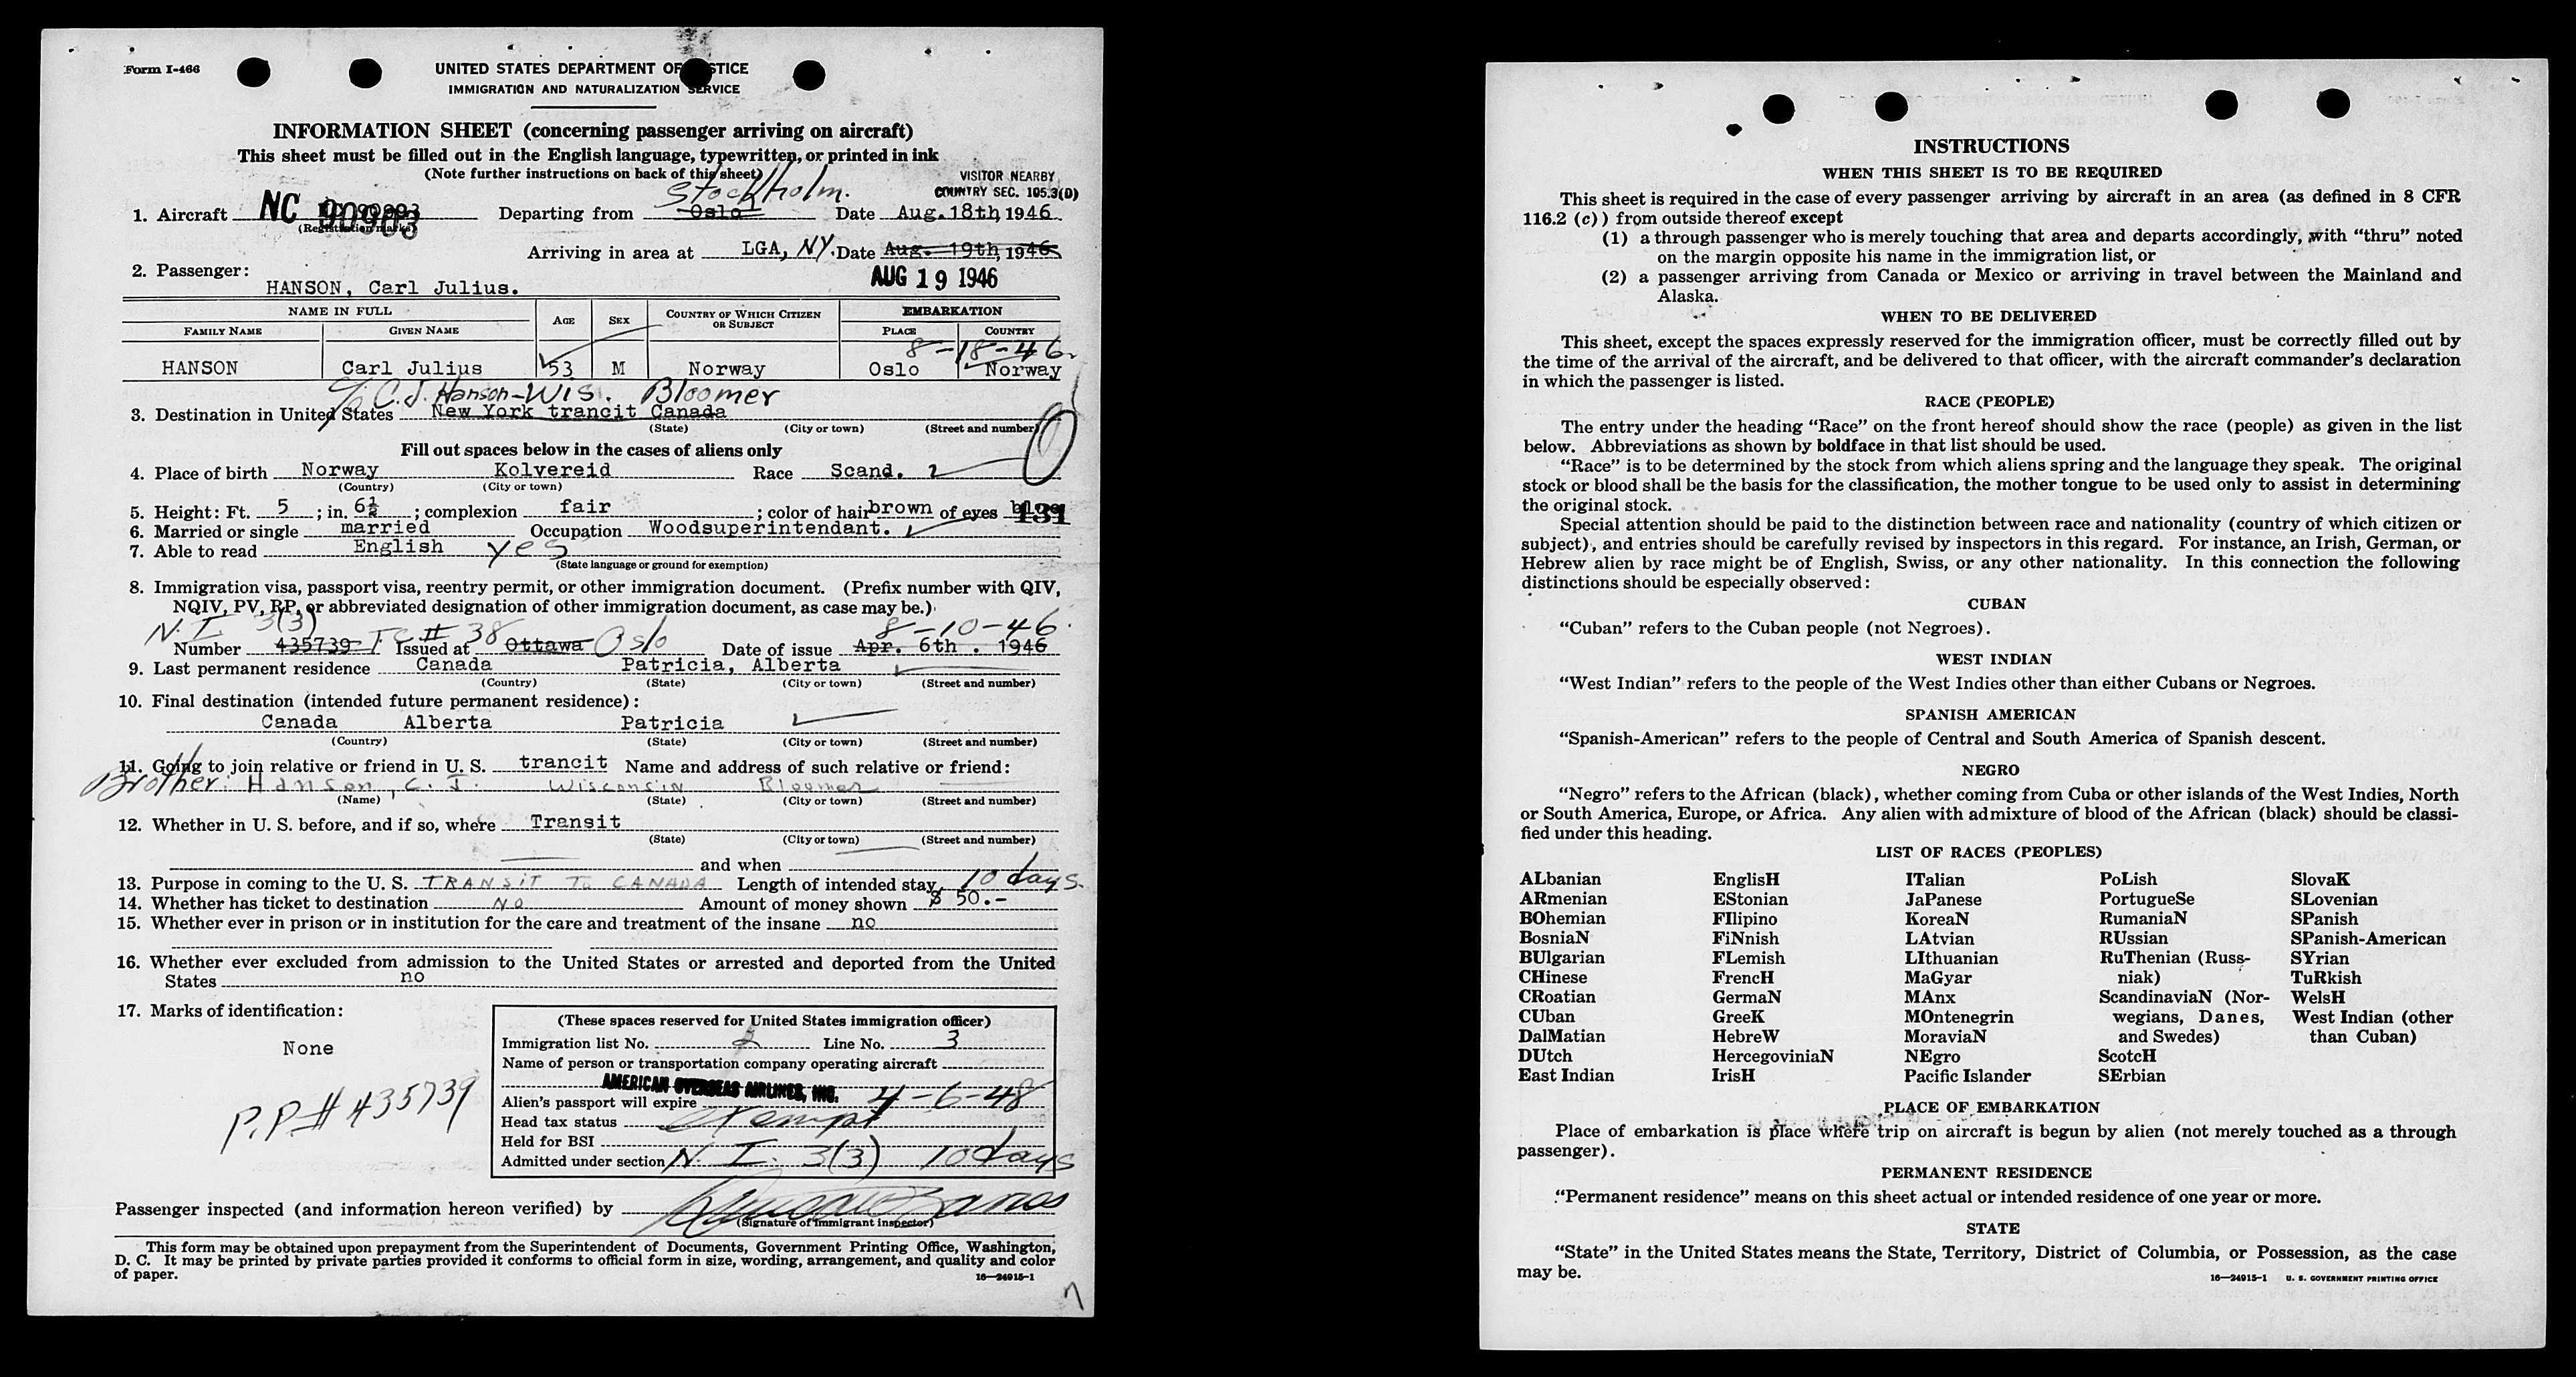 Form I-466
UNITED STATES DEPARTMENT OF JUSTICE
IMMIGRATION AND NATURALIZATION SERVICE
INFORMATION SHEET (concerning passenger arriving on aircraft)
This sheet must be filled out in the English language, typewritten, or printed in ink
(Note further instructions on back of this sheet)
VISITOR NEARBY
COUNTRY SEC. 105.3(D)
Stockholm.
1. Aircraft NC Departing from Oslo Date Aug. 18th, 1946
(Registration marks)
Arriving in area at LGA, NY. Date Aug. 19th, 1946
AUG 19 1946
2. Passenger:
HANSON, Carl Julius.
NAME IN FULL AGE SEX COUNTRY OF WHICH CITIZEN OR SUBJECT EMBARKATION
FAMILY NAME GIVEN NAME PLACE COUNTRY
8-18-46.
HANSON Carl Julius 53 M Norway Oslo Norway
c/o C.J. Hanson-Wis. Bloomer
3. Destination in United States New York trancit Canada
(State) (City or town) (Street and number)
Fill out spaces below in the cases of aliens only
4. Place of birth Norway Kolvereid Race Scand. 2
(Country) (City or town)
5. Height: Ft. 5 ; in. 6½ ; complexion fair ; color of hair brown of eyes
131
6. Married or single married Occupation Woodsuperintendant.
7. Able to read English yes
(State language or ground for exemption)
8. Immigration visa, passport visa, reentry permit, or other immigration document. (Prefix number with QIV,
NQIV, PV, RP, or abbreviated designation of other immigration document, as case may be.)
N.I. 3(3) 8-10-46.
Number 435739 T.C # 38 Issued at Ottawa Oslo Date of issue Apr. 6th. 1946
9. Last permanent residence Canada Patricia, Alberta
(Country) (State) (City or town) (Street and number)
10. Final destination (intended future permanent residence):
Canada Alberta Patricia
(Country) (State) (City or town) (Street and number)
11. Going to join relative or friend in U. S. trancit Name and address of such relative or friend:
Brother: Hanson, C. J. Wisconsin Bloomer
(Name) (State) (City or town) (Street and number)
12. Whether in U. S. before, and if so, where Transit
(State) (City or town) (Street and number)
and when
13. Purpose in coming to the U. S. TRANSIT TO CANADA Length of intended stay 10 days.
14. Whether has ticket to destination NO Amount of money shown $ 50.-
15. Whether ever in prison or in institution for the care and treatment of the insane no
16. Whether ever excluded from admission to the United States or arrested and deported from the United
States no
17. Marks of identification:
None
P.P.# 435739
(These spaces reserved for United States immigration officer)
Immigration list No. 2 Line No. 3
Name of person or transportation company operating aircraft
AMERICAN OVERSEAS AIRLINES, INC.
Alien's passport will expire 4-6-48
Head tax status exempt
Held for BSI
Admitted under section N. I. 3(3) 10 days
Passenger inspected (and information hereon verified) by
(Signature of immigrant inspector)
This form may be obtained upon prepayment from the Superintendent of Documents, Government Printing Office, Washington,
D. C. It may be printed by private parties provided it conforms to official form in size, wording, arrangement, and quality and color
of paper.
16—24915-1
INSTRUCTIONS
WHEN THIS SHEET IS TO BE REQUIRED
This sheet is required in the case of every passenger arriving by aircraft in an area (as defined in 8 CFR
116.2 (c)) from outside thereof except
(1) a through passenger who is merely touching that area and departs accordingly, with "thru" noted
on the margin opposite his name in the immigration list, or
(2) a passenger arriving from Canada or Mexico or arriving in travel between the Mainland and
Alaska.
WHEN TO BE DELIVERED
This sheet, except the spaces expressly reserved for the immigration officer, must be correctly filled out by
the time of the arrival of the aircraft, and be delivered to that officer, with the aircraft commander's declaration
in which the passenger is listed.
RACE (PEOPLE)
The entry under the heading "Race" on the front hereof should show the race (people) as given in the list
below. Abbreviations as shown by boldface in that list should be used.
"Race" is to be determined by the stock from which aliens spring and the language they speak. The original
stock or blood shall be the basis for the classification, the mother tongue to be used only to assist in determining
the original stock.
Special attention should be paid to the distinction between race and nationality (country of which citizen or
subject), and entries should be carefully revised by inspectors in this regard. For instance, an Irish, German, or
Hebrew alien by race might be of English, Swiss, or any other nationality. In this connection the following
distinctions should be especially observed:
CUBAN
"Cuban" refers to the Cuban people (not Negroes).
WEST INDIAN
"West Indian" refers to the people of the West Indies other than either Cubans or Negroes.
SPANISH AMERICAN
"Spanish-American" refers to the people of Central and South America of Spanish descent.
NEGRO
"Negro" refers to the African (black), whether coming from Cuba or other islands of the West Indies, North
or South America, Europe, or Africa. Any alien with admixture of blood of the African (black) should be classi-
fied under this heading.
LIST OF RACES (PEOPLES)
ALbanian EnglisH ITalian PoLish SlovaK
ARmenian EStonian JaPanese PortugueSe SLovenian
BOhemian FIlipino KoreaN RumaniaN SPanish
BosniaN FiNnish LAtvian RUssian SPanish-American
BUlgarian FLemish LIthuanian RuThenian (Russ- SYrian
CHinese FrencH MaGyar niak) TuRkish
CRoatian GermaN MAnx ScandinaviaN (Nor- WelsH
CUban GreeK MOntenegrin wegians, Danes, West Indian (other
DalMatian HebreW MoraviaN and Swedes) than Cuban)
DUtch HercegoviniaN NEgro ScotcH
East Indian IrisH Pacific Islander SErbian
PLACE OF EMBARKATION
Place of embarkation is place where trip on aircraft is begun by alien (not merely touched as a through
passenger).
PERMANENT RESIDENCE
"Permanent residence" means on this sheet actual or intended residence of one year or more.
STATE
"State" in the United States means the State, Territory, District of Columbia, or Possession, as the case
may be.
16—24915-1 U. S. GOVERNMENT PRINTING OFFICE